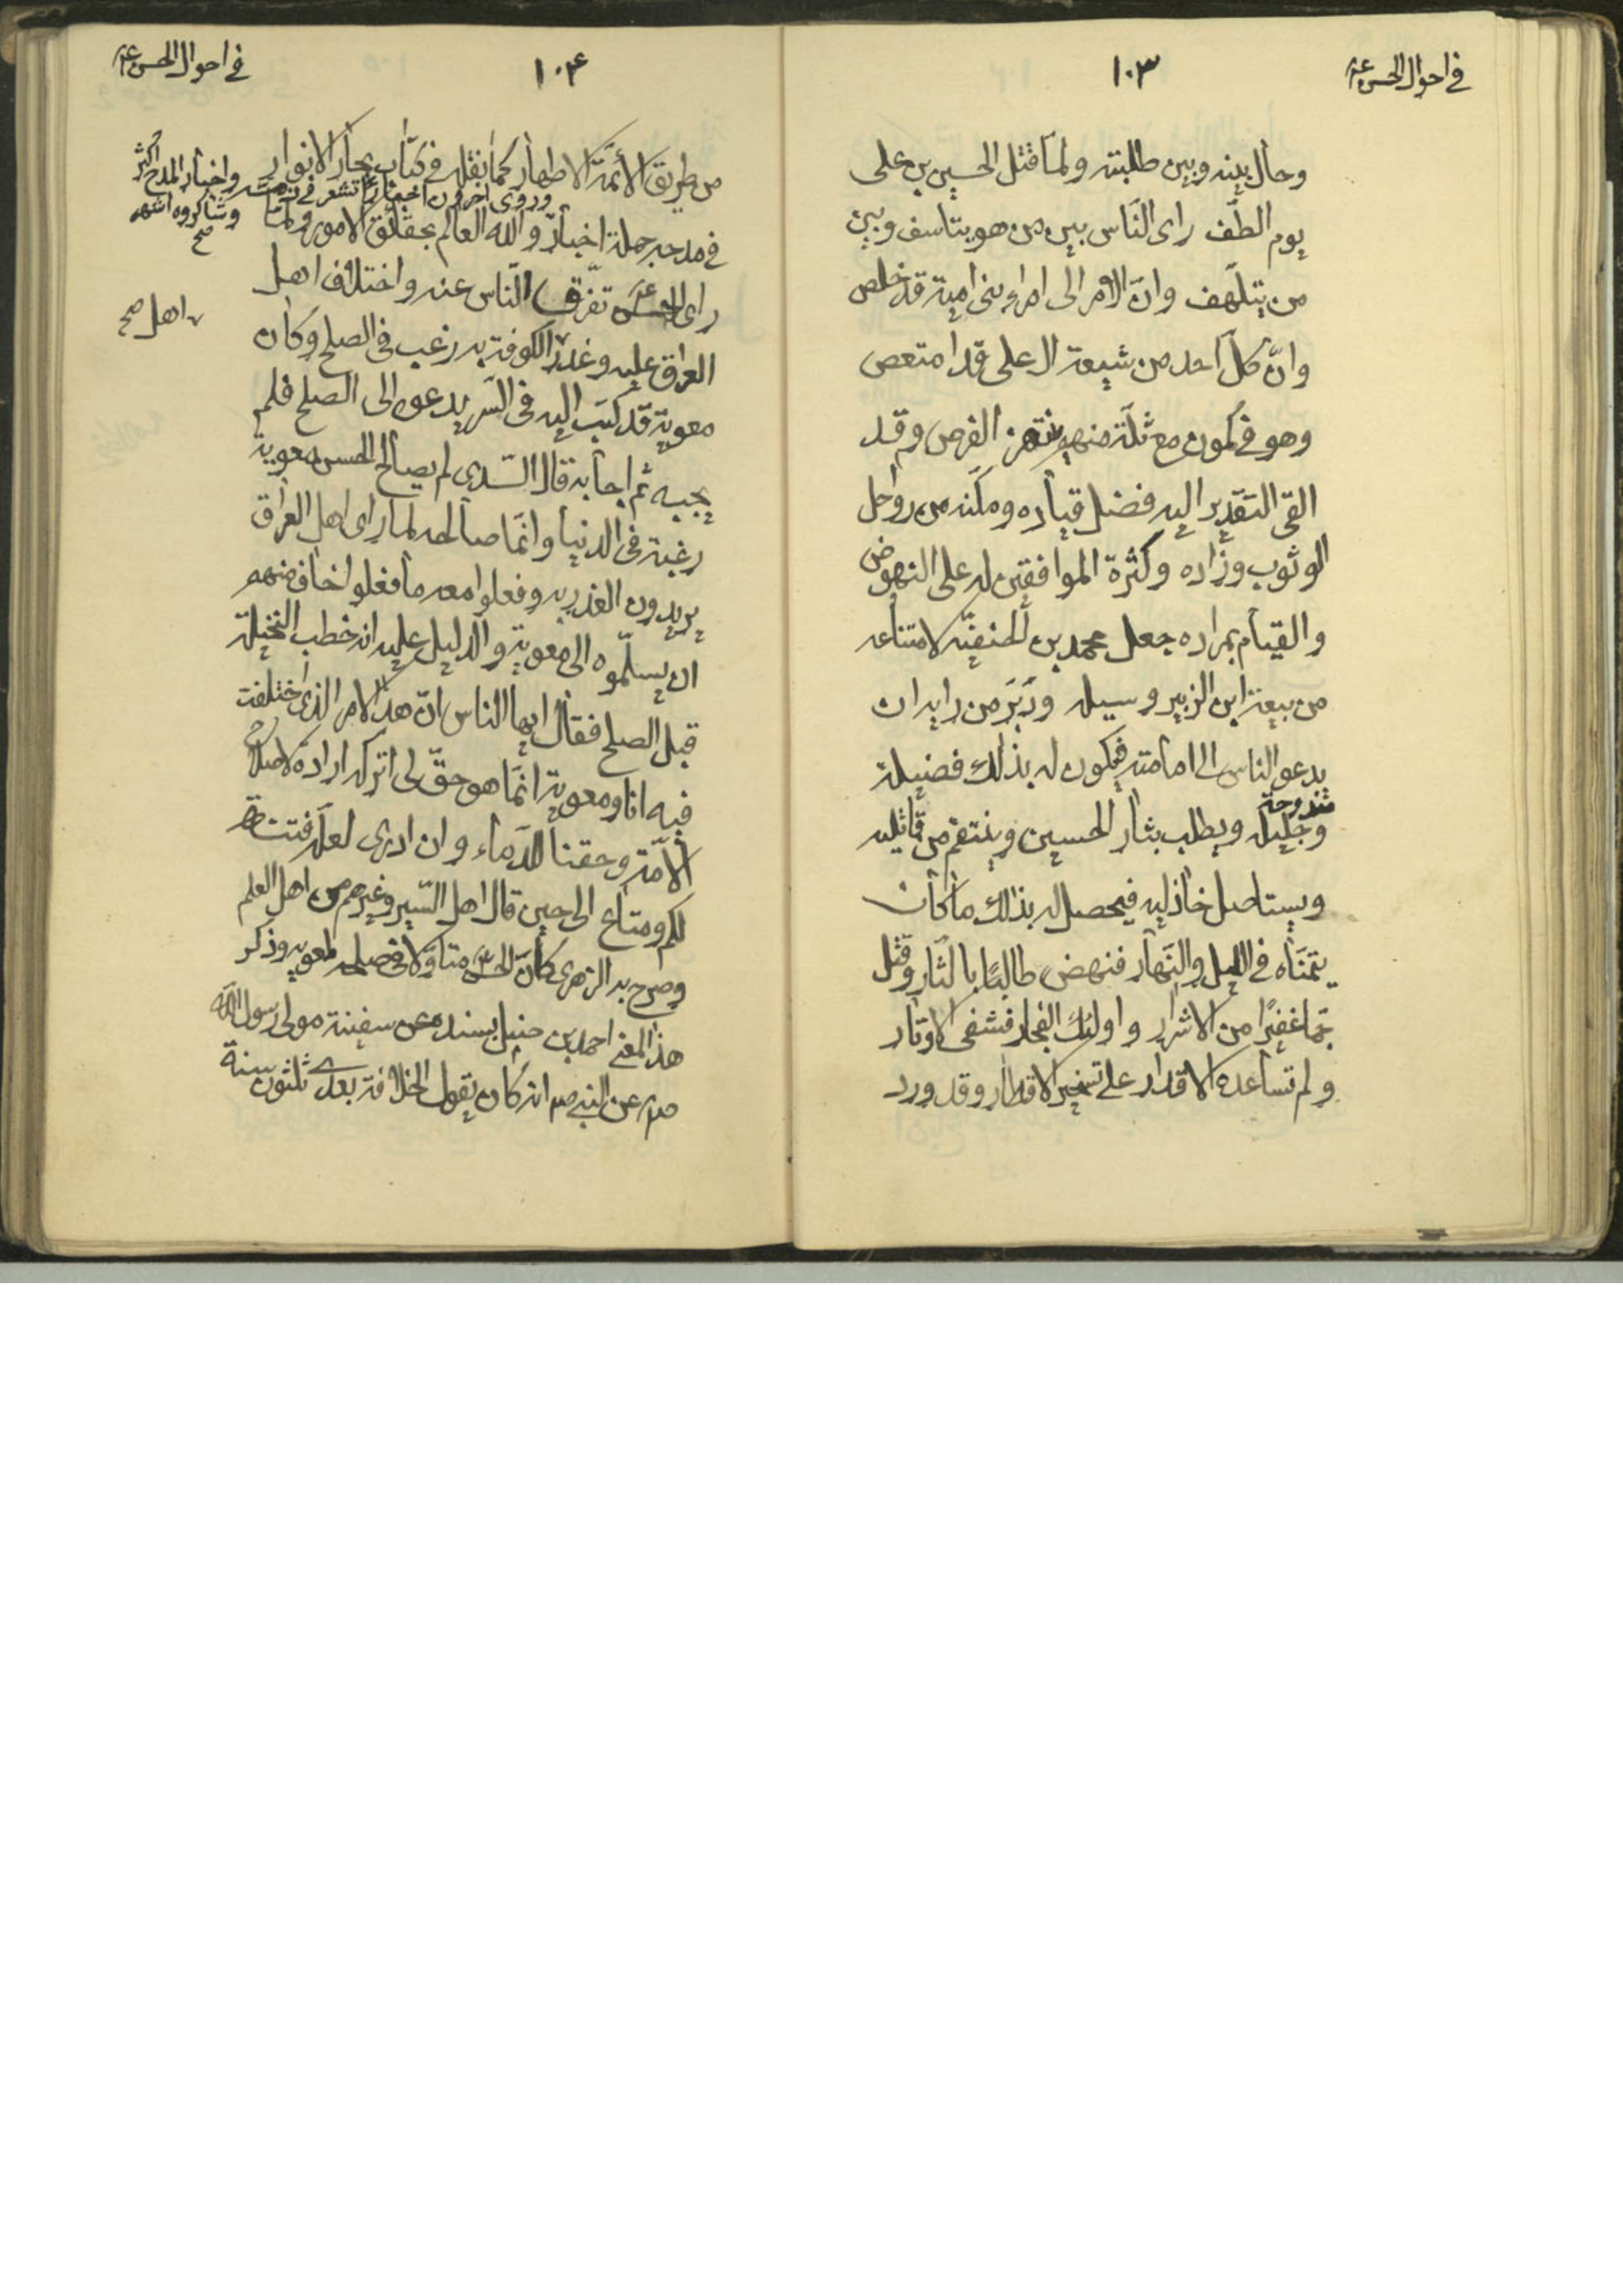 في احوال الحسن ع
١٠٣
وحال بينه وبين طلبته ولما قتل الحسين بن علی
يوم الطّف رای النّاس بين من هو يتاسف وبين
من يتلهّف وانّ الامر الی امراء بنی امية قد خلص
وانّ كلّ احد من شيعة ال علی قد امتعص
وهو فی كمون مع ثلّة منهم ينتهز الفرص وقد
القی التقدير اليه فضل قياده ومكّنه من رواحل
الوثوب وزاده وكثرة الموافقين له علی النهوض
والقيام بمراده جعل محمد بن الحنفيّه لامتناعه
من بيعة ابن الزبير وسيلة ودَبَر من رايه ان
يدعو الناس الی امامته فيكون له بذلك فضيلة
مندوحة
وجليلة ويطلب بثار الحسين وينتقم من قاتليه
ويستاصل خاذليه فيحصل له بذلك ما كان
يتمنّاه فی الليل والنّهار فنهض طالبًا بالثّار وقتل
جمّا غفيرًا من الاشرار واولئك الفجار فشفی الاوتار
ولم تساعده الاقدار علی تسخير الاقطار وقد ورد
في احوال الحسن ع
١٠۴
من طريق الأئمّة الاطهار كما نقله فی كتاب بحار الانوار
وروی اخرون اخبارًا تشعر فی مذمّته واخبار المدح اكثر
وشاكروه اشهر
صح
فی مدحه جملة اخبار والله العالم بحقائق الامور ولمّا
رای الحسن ع تفرّق النّاس عنه واختلاف اهل
العراق عليه وغدر الكوفة به رغب فی الصلح وكان
اهل صح
معوية قد كتب اليه فی السّر يدعوه الی الصلح فلم
يجبه ثم اجابه قال السّدی لم يصالح الحسن معوية
رغبة فی الدنيا وانّما صالحه لما رای اهل العراق
يريدون الغدر به وفعلوا معه ما فعلوا خاف منهم
ان يسلّموه الی معوية والدليل عليه انه خطب النخيلة
قبل الصلح فقال ايها الناس انّ هذا الامر الذی اختلفت
فيه انا ومعوية انّما هو حقّ لی اتركه ارادة لاصلاح
الأمّة وحقنا للدّماء وان ادری لعلّه فتنة
لكم ومتاع الی حين قال اهل السّير وغيرهم من اهل العلم
وصرح به الزهری كان الحسن متاوّلا فی صلحه لمعويه وذكر
هذا المعنی احمد بن حنبل بسنده عن سفينة مولی رسول الله
صم عن النبی صم انه كان يقول الخلافة بعدی ثلثون سنة